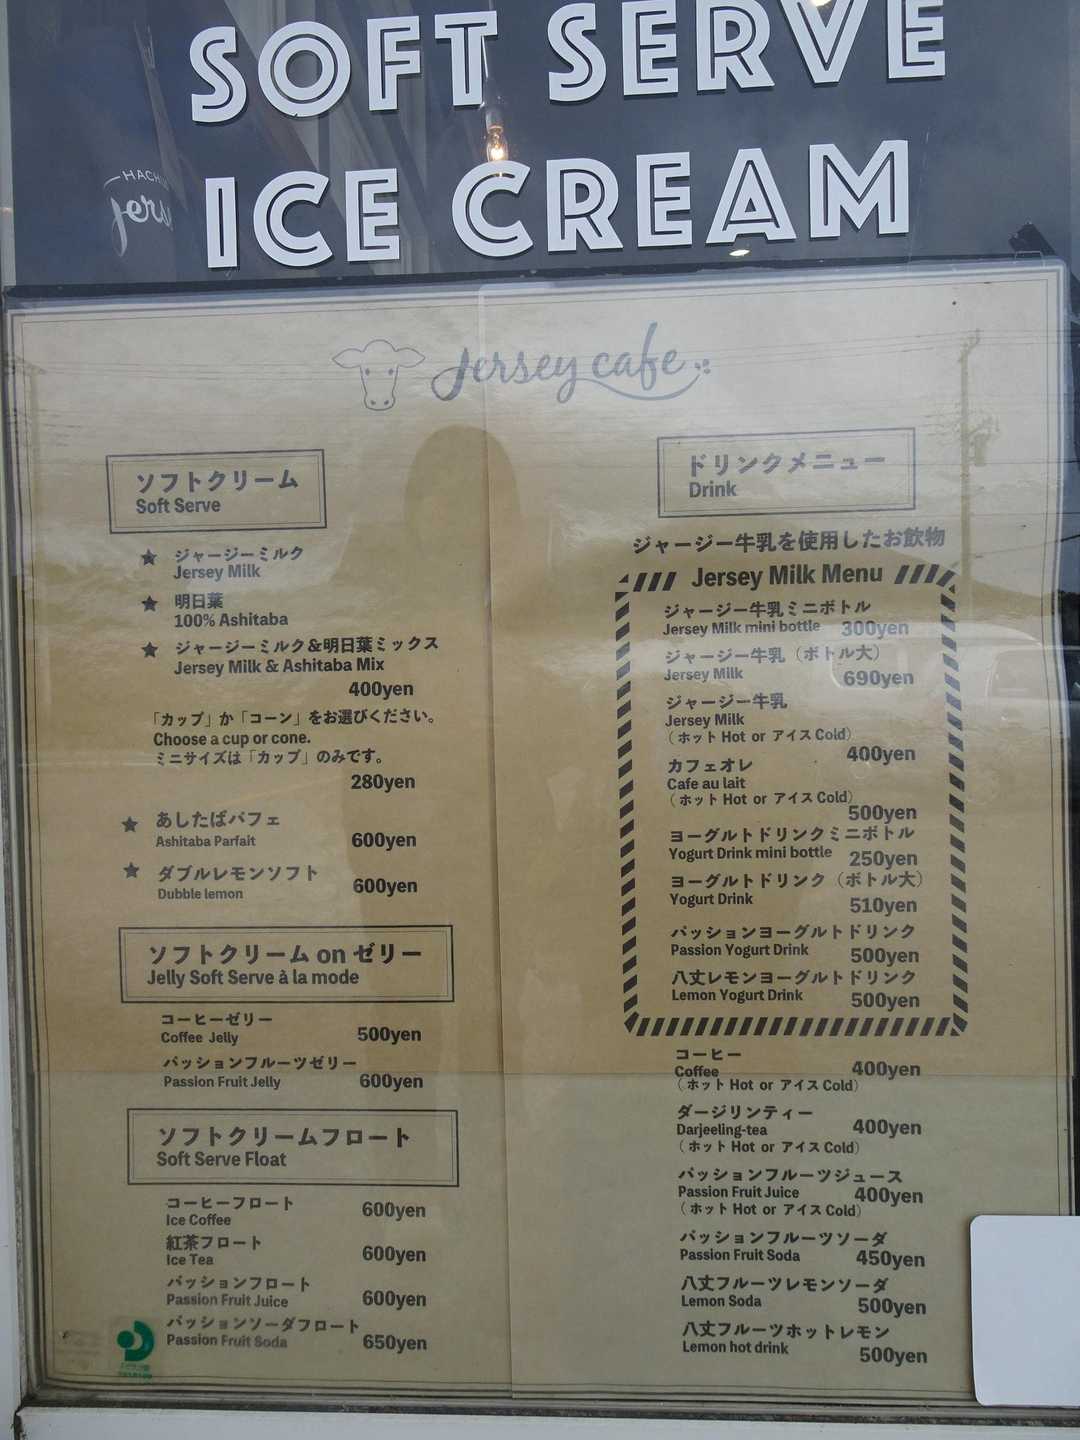 SOFT SERVE
ICE CREAM
HACHI
Jers
Jersey cafe
ソフトクリーム
Soft Serve
★ ジャージーミルク
Jersey Milk
★ 明日葉
100% Ashitaba
★ ジャージーミルク&明日葉ミックス
Jersey Milk & Ashitaba Mix
400yen
「カップ」か「コーン」をお選びください。
Choose a cup or cone.
ミニサイズは「カップ」のみです。
280yen
★ あしたばパフェ
Ashitaba Parfait 600yen
★ ダブルレモンソフト
Dubble lemon 600yen
ソフトクリーム on ゼリー
Jelly Soft Serve à la mode
コーヒーゼリー
Coffee Jelly 500yen
パッションフルーツゼリー
Passion Fruit Jelly 600yen
ソフトクリームフロート
Soft Serve Float
コーヒーフロート
Ice Coffee 600yen
紅茶フロート
Ice Tea 600yen
パッションフロート
Passion Fruit Juice 600yen
パッションソーダフロート
Passion Fruit Soda 650yen
ドリンクメニュー
Drink
ジャージー牛乳を使用したお飲物
Jersey Milk Menu
ジャージー牛乳ミニボトル
Jersey Milk mini bottle 300yen
ジャージー牛乳(ボトル大)
Jersey Milk 690yen
ジャージー牛乳
Jersey Milk
(ホット Hot or アイス Cold)
400yen
カフェオレ
Cafe au lait
(ホット Hot or アイス Cold)
500yen
ヨーグルトドリンクミニボトル
Yogurt Drink mini bottle 250yen
ヨーグルトドリンク(ボトル大)
Yogurt Drink 510yen
パッションヨーグルトドリンク
Passion Yogurt Drink 500yen
八丈レモンヨーグルトドリンク
Lemon Yogurt Drink 500yen
コーヒー
Coffee 400yen
(ホット Hot or アイス Cold)
ダージリンティー
Darjeeling-tea 400yen
(ホット Hot or アイス Cold)
パッションフルーツジュース
Passion Fruit Juice 400yen
(ホット Hot or アイス Cold)
パッションフルーツソーダ
Passion Fruit Soda 450yen
八丈フルーツレモンソーダ
Lemon Soda 500yen
八丈フルーツホットレモン
Lemon hot drink 500yen